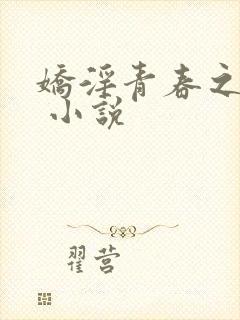 嬌淫青春之
小說
翟营